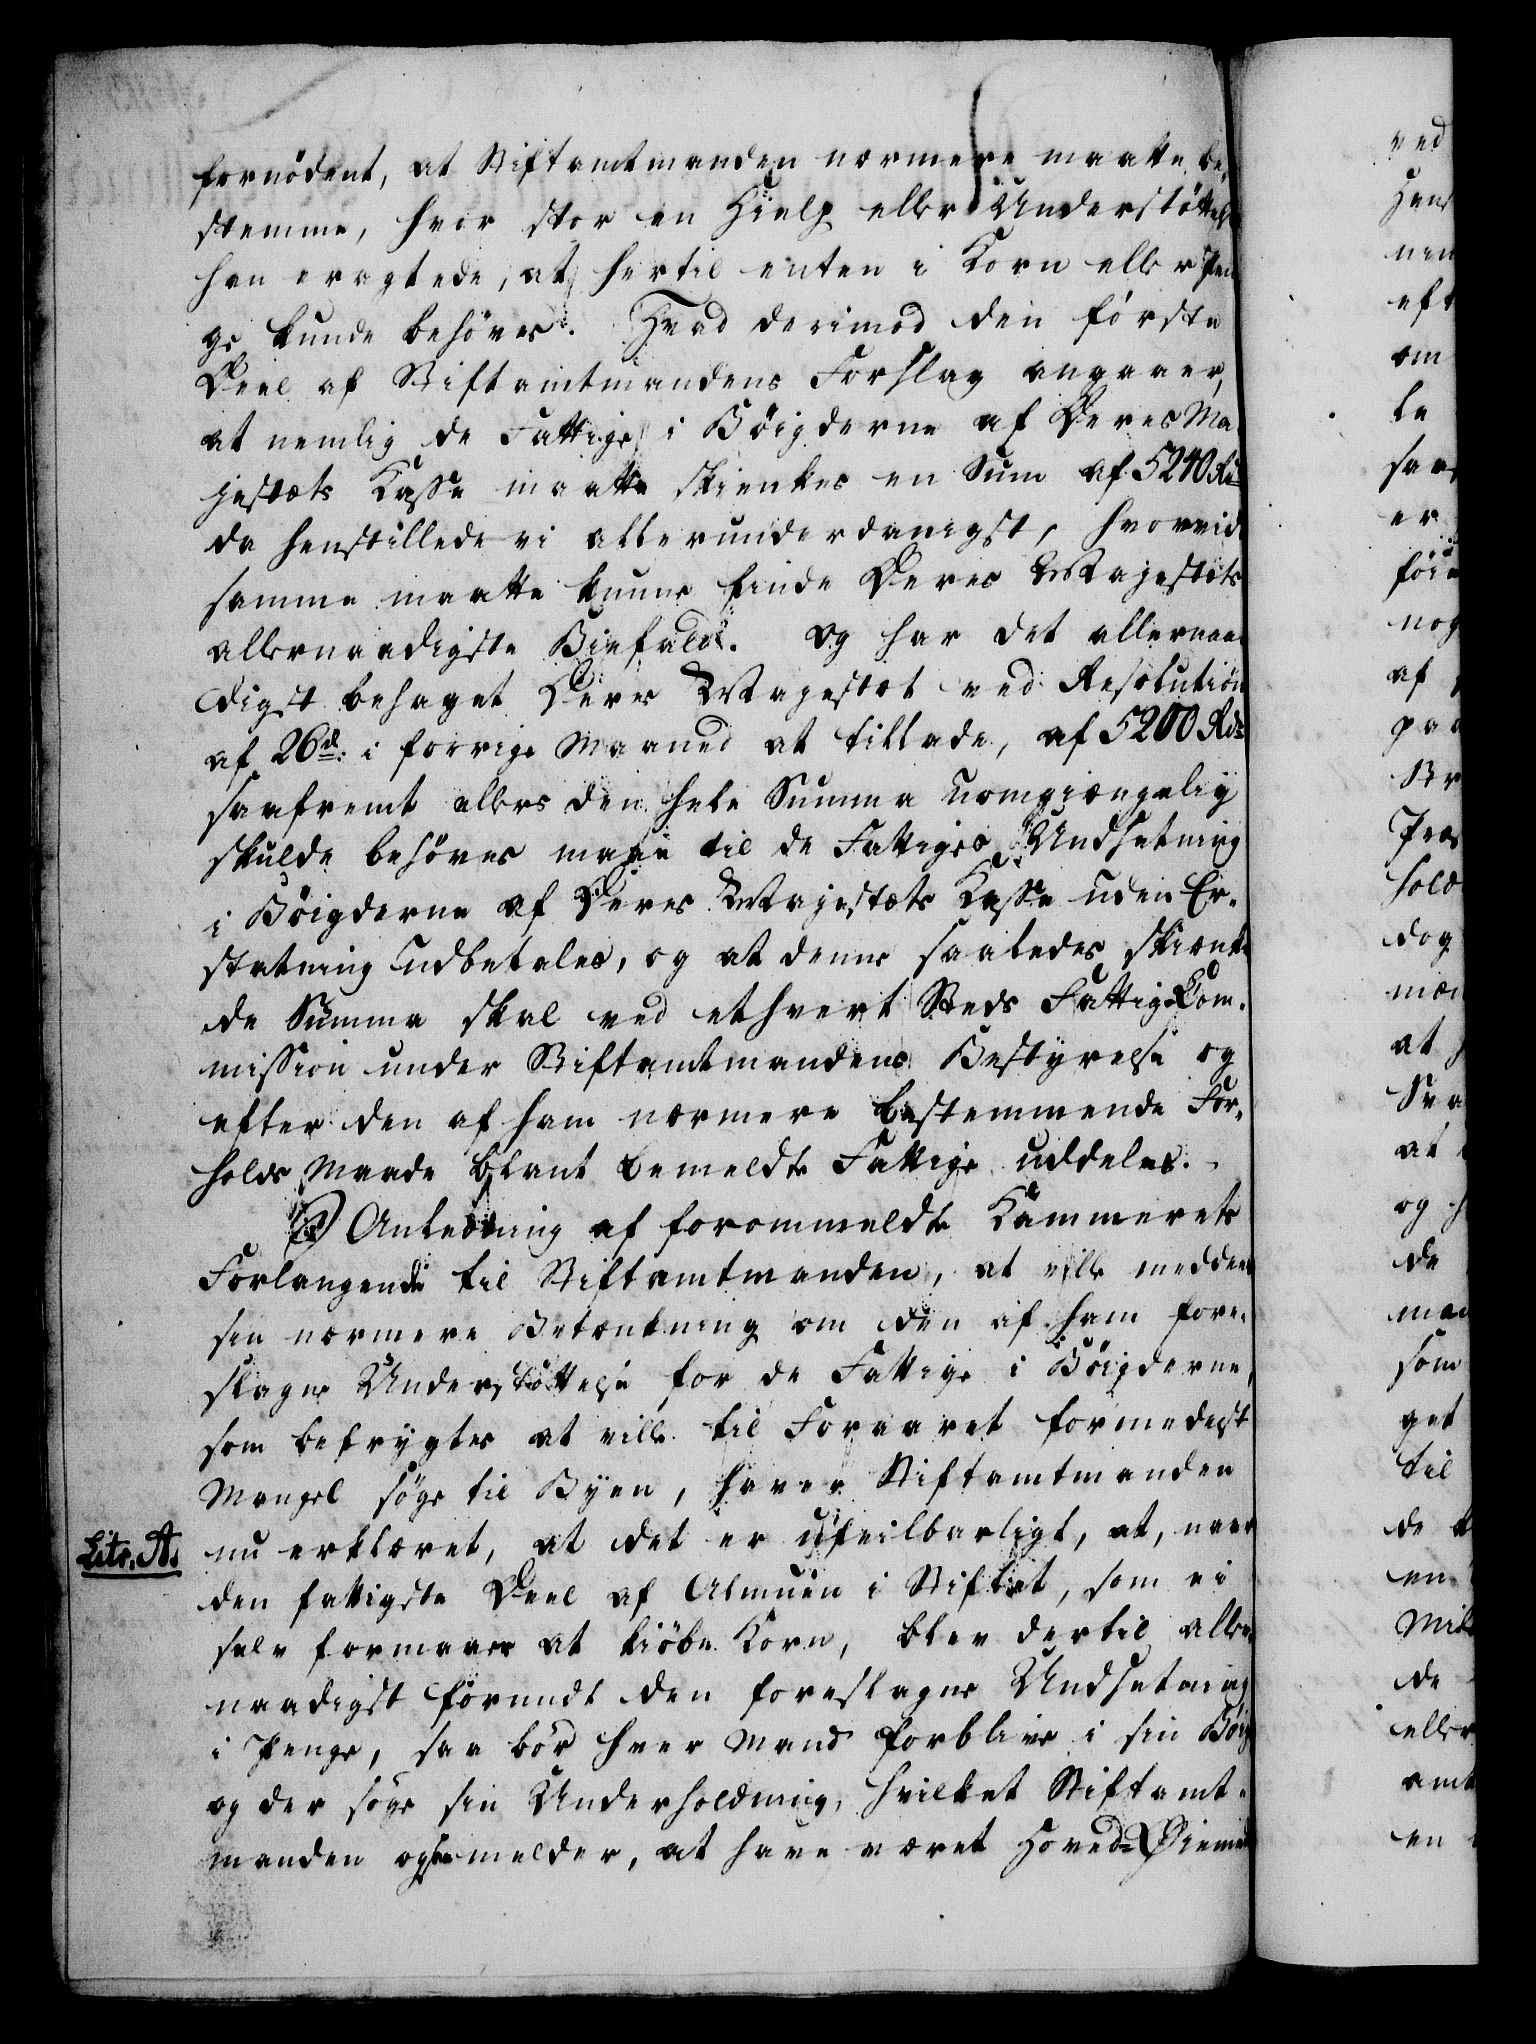 fornödent, at Stiftamtmanden nærmere maatte be-
stemme, hvor stor en Hielp eller Understöttelse
han eragtede, at hertil enten i Korn eller Pen
ge kunde behöves. Hvad derimod den förste
Deel af Stiftamtmandens Forslag angaaer,
at nemlig de Fattige i Böigderne af Deres Ma
jestæts Kasse maatte skienkes en Sum af 5240 Rd
da henstillede vi allerunderdanigst, hvorvidt
samme maatte kunne finde Deres Majestæts
allernaadigste Biefald. Og har det allernaa
digst behaget Deres Majestæt ved Resolution
af 26d. i forrige Maaned at tillade, af 5200 Rdr
saafremt ellers den hele Summa uomgiængelig
skulde behöves maae til de Fattiges Undsetning
i Böigderne af Deres Majestæts Kasse uden Er-
statning udbetales, og at denne saaledes skienke
de Summa skal ved ethvert Steds Fattig-Com-
mission under Stiftamtmandens Bestyrelse og
efter den af ham nærmere bestemmende For-
holds Maade blant bemeldte Fattige uddeles.
I Anledning af forommeldte Kammerets
Forlangende til Stiftamtmanden, at ville meddeele
sin nærmere Betænkning om den af ham fore-
slagne Understöttelse for de Fattige i Böigderne,
som befrygtes at ville til Foraaret formedelst
Mangel söge til Byen, haver Stiftamtmanden
Litr. A. nu erklæret, at det er ufeilbarligt, at, naar
den fattigste Deel af Almuen i Stiftet, som ei
selv formaaer at kiöbe Korn, blev dertil aller-
naadigst forundt den foreslagne Undsetning
i Penge, saa bör hver Mand forblive i sin Böig
og der söge sin Underholdning, hvilket Stiftamt-
manden ogsaa melder, at have været Hoved-Öiemed
ved
nen
eft
om
te
saa
er
nog
af
paa
hold
dog
at
Sva
at
og
de
som
get
til
de
en
de
eller
amt
en